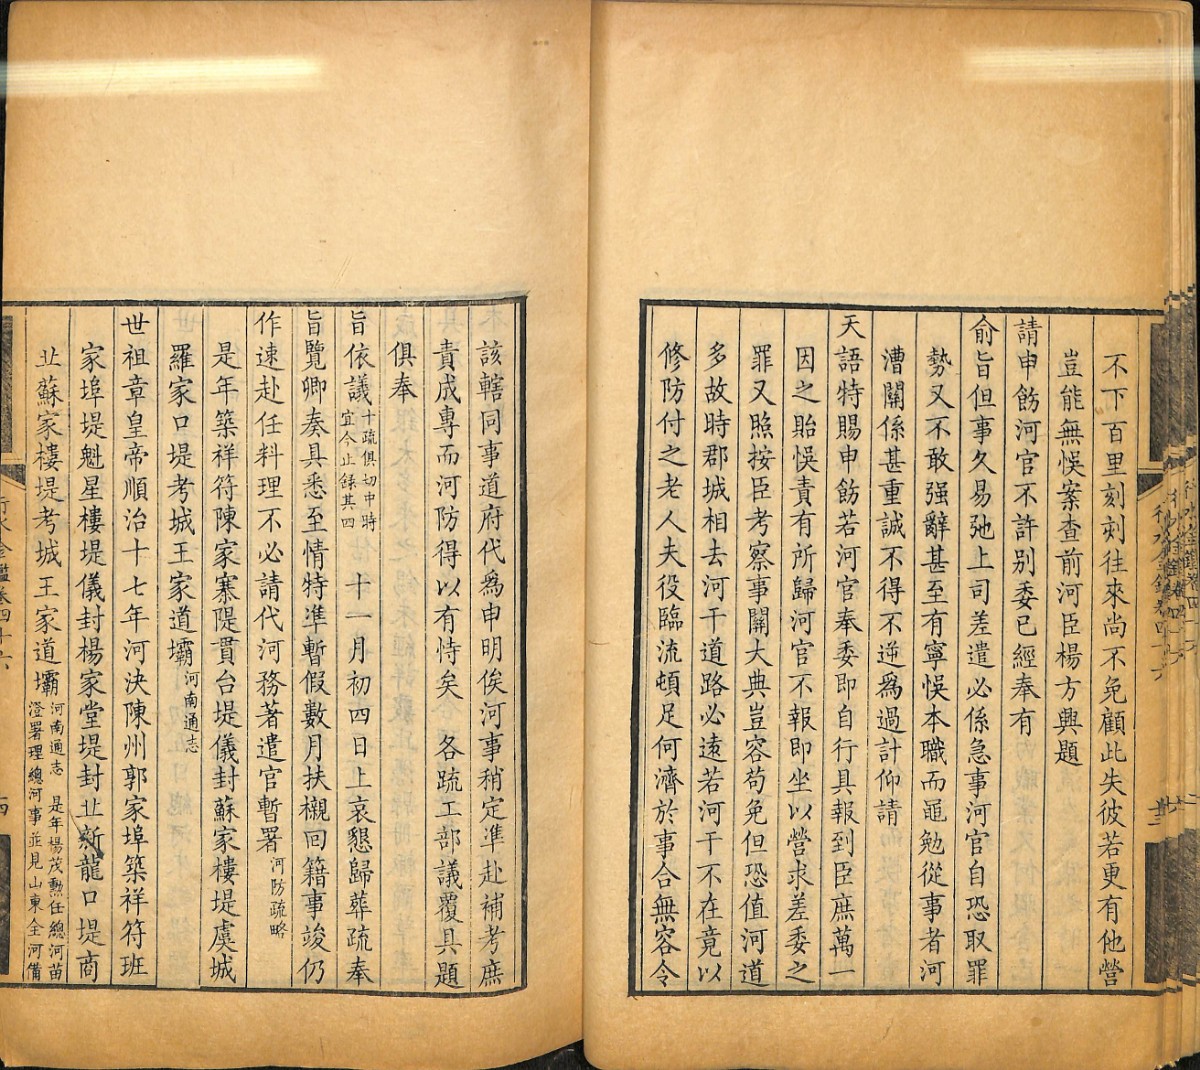 不下百里刻刻往來尚不免顧此失彼若更有他營
豈能無悞案查前河臣楊方興題
請申飭河官不許別委已經奉有
俞旨但事久易弛上司差遣必係急事河官自恐取罪
勢又不敢强辭甚至有寧悞本職而黽勉從事者河
漕關係甚重誠不得不逆爲過計仰請
天語特賜申飭若河官奉委即自行具報到臣庶萬一
因之貽悞責有所歸河官不報即坐以營求差委之
罪又照按臣考察事關大典豈容苟免但恐值河道
多故時郡城相去河干道路必遠若河干不在竟以
修防付之老人夫役臨流頓足何濟於事合無容令
該轄同事道府代爲申明俟河事稍定準赴補考庶
責成專而河防得以有恃矣 各疏工部議覆具題
俱奉
旨依議十疏俱切中時宜今止錄其四 十一月初四日上哀懇歸葬疏奉
旨覽卿奏具悉至情特準暫假數月扶櫬回籍事竣仍
作速赴任料理不必請代河務著遣官暫署河防疏略
是年築祥符陳家寨隄貫台堤儀封蘇家樓堤虞城
羅家口堤考城王家道壩河南通志
世祖章皇帝順治十七年河決陳州郭家埠築祥符班
家埠堤魁星樓堤儀封楊家堂堤封丠新龍口堤商
丠蘇家樓堤考城王家道壩河南通志 是年楊茂勲任總河苗澄署理總河事並見山東全河備
行水金鑑卷四十六